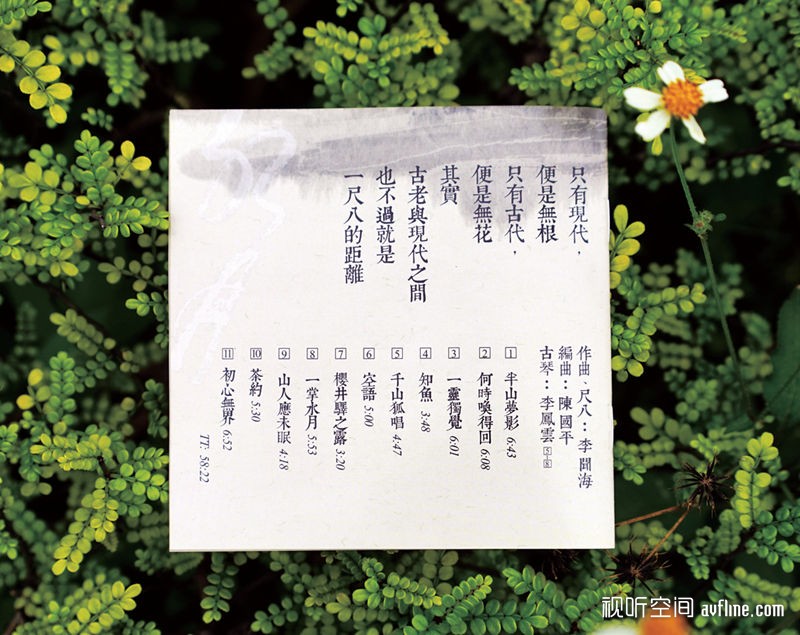 只有現代，
便是無根
只有古代，
便是無花
其實
古老與現代之間
也不過就是
一尺八的距離
作曲、尺八：李聞海
編曲：陳國平
古琴：李鳳雲 5-8
1 半山夢影 6:43
2 何時喚得回 6:08
3 一靈獨覺 6:01
4 知魚 3:48
5 千山狐唱 4:47
6 空語 5:00
7 櫻井驛之露 3:20
8 一掌水月 5:53
9 山人應未眠 4:18
10 茶約 5:30
11 初心無界 6:52
TT: 58:22
视听空间 avfline.com